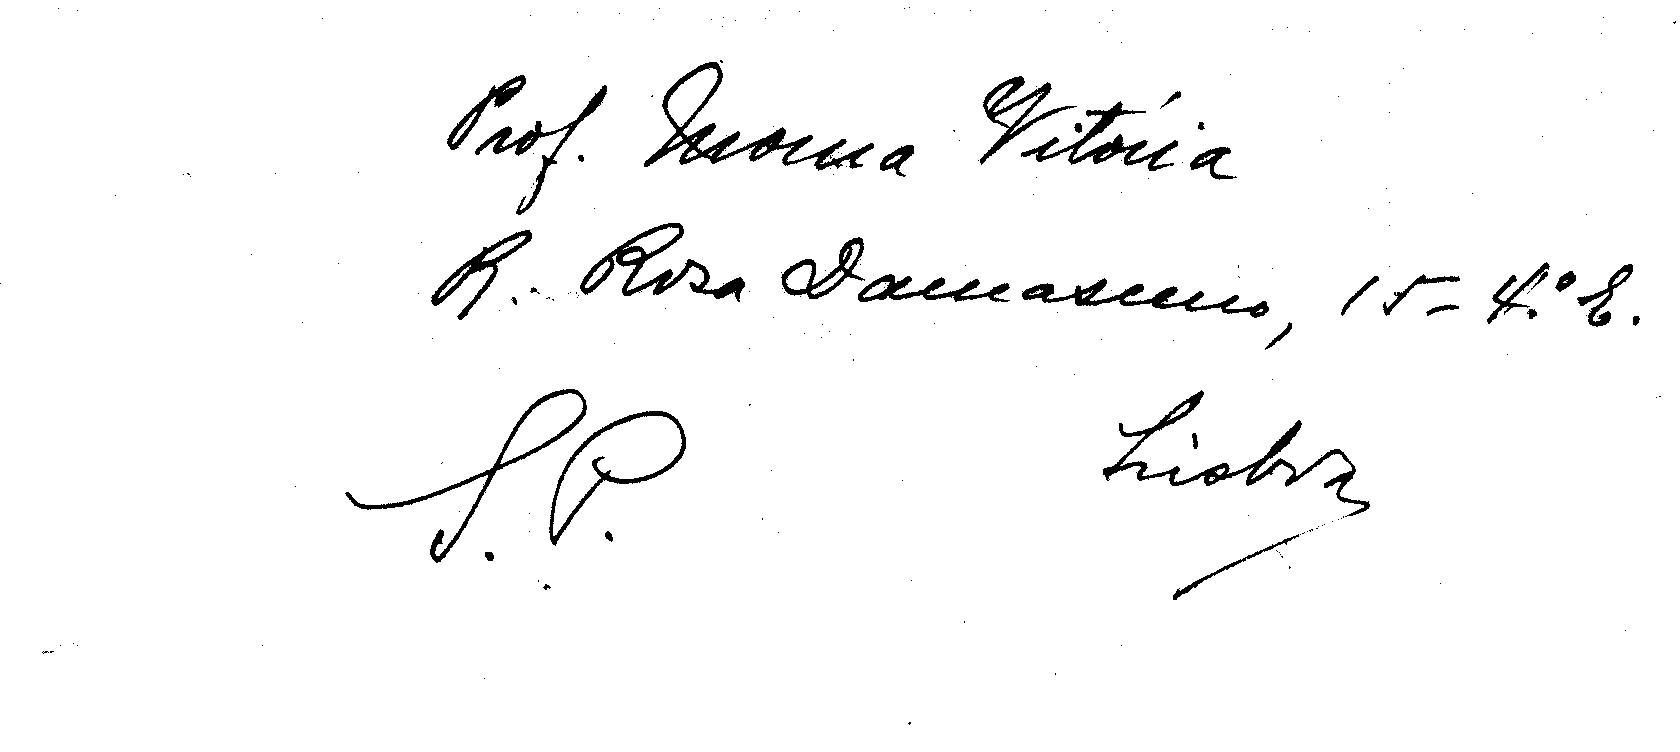 Prof. Moura Vitória
R. Rosa Damasceno, 15-4.º E.
S. P. Lisboa